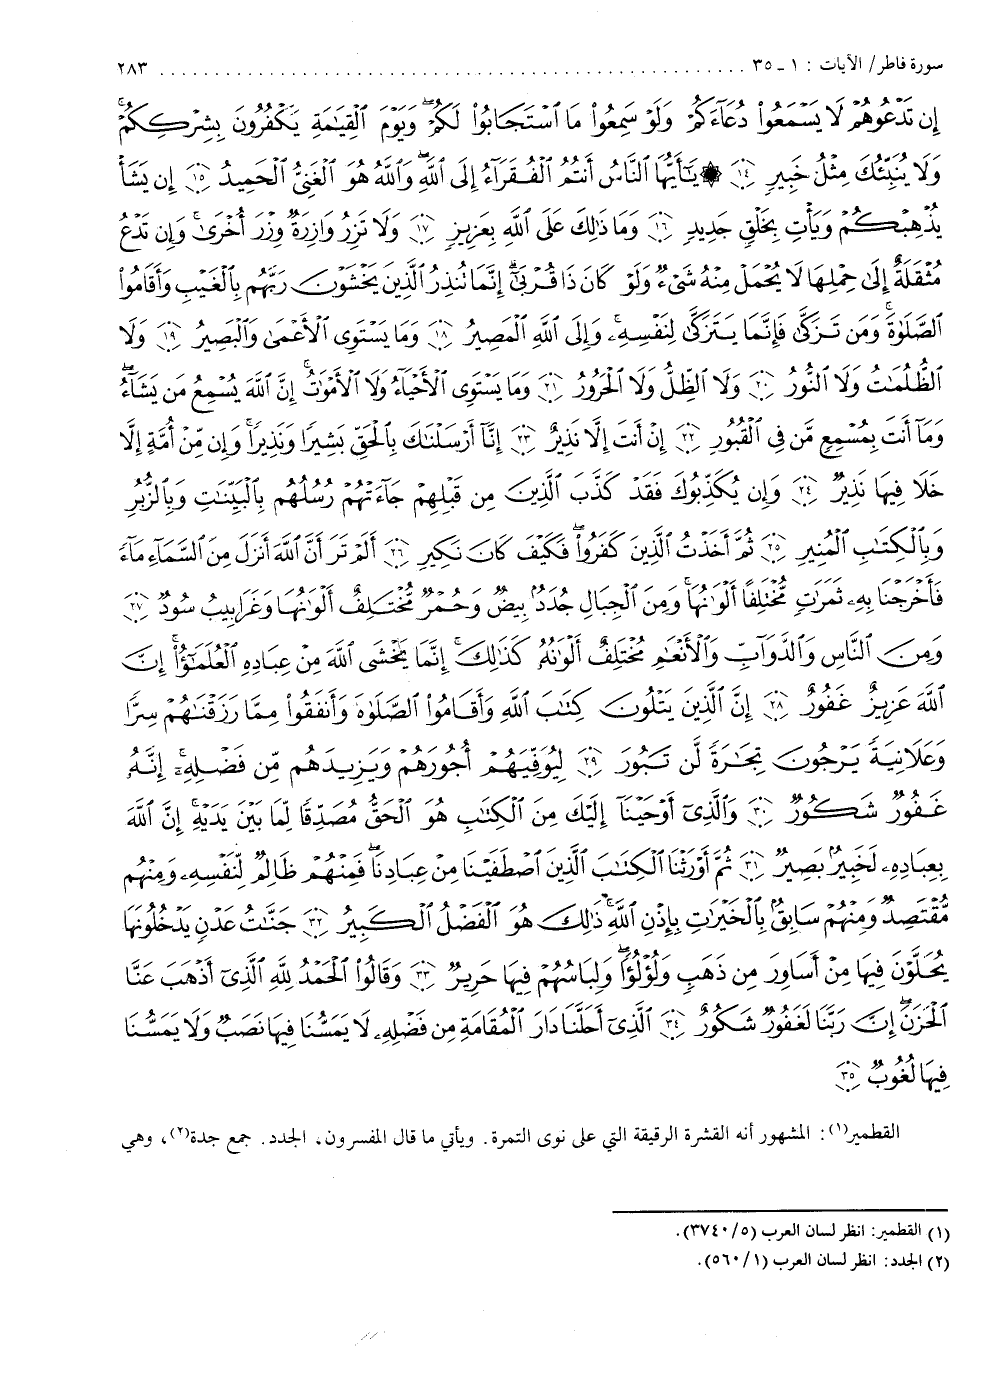 سورة فاطر/ الآيات : ١ ـ ٣٥ ............................................................ ٢٨٣
إِن تَدْعُوهُمْ لَا يَسْمَعُوا۟ دُعَآءَكُمْ وَلَوْ سَمِعُوا۟ مَا ٱسْتَجَابُوا۟ لَكُمْ ۖ وَيَوْمَ ٱلْقِيَٰمَةِ يَكْفُرُونَ بِشِرْكِكُمْ ۚ
وَلَا يُنَبِّئُكَ مِثْلُ خَبِيرٍ ١٤ ۞ يَٰٓأَيُّهَا ٱلنَّاسُ أَنتُمُ ٱلْفُقَرَآءُ إِلَى ٱللَّهِ ۖ وَٱللَّهُ هُوَ ٱلْغَنِىُّ ٱلْحَمِيدُ ١٥ إِن يَشَأْ
يُذْهِبْكُمْ وَيَأْتِ بِخَلْقٍ جَدِيدٍ ١٦ وَمَا ذَٰلِكَ عَلَى ٱللَّهِ بِعَزِيزٍ ١٧ وَلَا تَزِرُ وَازِرَةٌ وِزْرَ أُخْرَىٰ ۚ وَإِن تَدْعُ
مُثْقَلَةٌ إِلَىٰ حِمْلِهَا لَا يُحْمَلْ مِنْهُ شَىْءٌ وَلَوْ كَانَ ذَا قُرْبَىٰٓ ۗ إِنَّمَا تُنذِرُ ٱلَّذِينَ يَخْشَوْنَ رَبَّهُم بِٱلْغَيْبِ وَأَقَامُوا۟
ٱلصَّلَوٰةَ ۚ وَمَن تَزَكَّىٰ فَإِنَّمَا يَتَزَكَّىٰ لِنَفْسِهِۦ ۚ وَإِلَى ٱللَّهِ ٱلْمَصِيرُ ١٨ وَمَا يَسْتَوِى ٱلْأَعْمَىٰ وَٱلْبَصِيرُ ١٩ وَلَا
ٱلظُّلُمَٰتُ وَلَا ٱلنُّورُ ٢٠ وَلَا ٱلظِّلُّ وَلَا ٱلْحَرُورُ ٢١ وَمَا يَسْتَوِى ٱلْأَحْيَآءُ وَلَا ٱلْأَمْوَٰتُ ۚ إِنَّ ٱللَّهَ يُسْمِعُ مَن يَشَآءُ ۖ
وَمَآ أَنتَ بِمُسْمِعٍ مَّن فِى ٱلْقُبُورِ ٢٢ إِنْ أَنتَ إِلَّا نَذِيرٌ ٢٣ إِنَّآ أَرْسَلْنَٰكَ بِٱلْحَقِّ بَشِيرًا وَنَذِيرًا ۚ وَإِن مِّنْ أُمَّةٍ إِلَّا
خَلَا فِيهَا نَذِيرٌ ٢٤ وَإِن يُكَذِّبُوكَ فَقَدْ كَذَّبَ ٱلَّذِينَ مِن قَبْلِهِمْ جَآءَتْهُمْ رُسُلُهُم بِٱلْبَيِّنَٰتِ وَبِٱلزُّبُرِ
وَبِٱلْكِتَٰبِ ٱلْمُنِيرِ ٢٥ ثُمَّ أَخَذْتُ ٱلَّذِينَ كَفَرُوا۟ ۖ فَكَيْفَ كَانَ نَكِيرِ ٢٦ أَلَمْ تَرَ أَنَّ ٱللَّهَ أَنزَلَ مِنَ ٱلسَّمَآءِ مَآءً
فَأَخْرَجْنَا بِهِۦ ثَمَرَٰتٍ مُّخْتَلِفًا أَلْوَٰنُهَا ۚ وَمِنَ ٱلْجِبَالِ جُدَدٌۢ بِيضٌ وَحُمْرٌ مُّخْتَلِفٌ أَلْوَٰنُهَا وَغَرَابِيبُ سُودٌ ٢٧
وَمِنَ ٱلنَّاسِ وَٱلدَّوَآبِّ وَٱلْأَنْعَٰمِ مُخْتَلِفٌ أَلْوَٰنُهُۥ كَذَٰلِكَ ۗ إِنَّمَا يَخْشَى ٱللَّهَ مِنْ عِبَادِهِ ٱلْعُلَمَٰٓؤُا۟ ۗ إِنَّ
ٱللَّهَ عَزِيزٌ غَفُورٌ ٢٨ إِنَّ ٱلَّذِينَ يَتْلُونَ كِتَٰبَ ٱللَّهِ وَأَقَامُوا۟ ٱلصَّلَوٰةَ وَأَنفَقُوا۟ مِمَّا رَزَقْنَٰهُمْ سِرًّا
وَعَلَانِيَةً يَرْجُونَ تِجَٰرَةً لَّن تَبُورَ ٢٩ لِيُوَفِّيَهُمْ أُجُورَهُمْ وَيَزِيدَهُم مِّن فَضْلِهِۦٓ ۚ إِنَّهُۥ
غَفُورٌ شَكُورٌ ٣٠ وَٱلَّذِىٓ أَوْحَيْنَآ إِلَيْكَ مِنَ ٱلْكِتَٰبِ هُوَ ٱلْحَقُّ مُصَدِّقًا لِّمَا بَيْنَ يَدَيْهِ ۗ إِنَّ ٱللَّهَ
بِعِبَادِهِۦ لَخَبِيرٌۢ بَصِيرٌ ٣١ ثُمَّ أَوْرَثْنَا ٱلْكِتَٰبَ ٱلَّذِينَ ٱصْطَفَيْنَا مِنْ عِبَادِنَا ۖ فَمِنْهُمْ ظَالِمٌ لِّنَفْسِهِۦ وَمِنْهُم
مُّقْتَصِدٌ وَمِنْهُمْ سَابِقٌۢ بِٱلْخَيْرَٰتِ بِإِذْنِ ٱللَّهِ ۚ ذَٰلِكَ هُوَ ٱلْفَضْلُ ٱلْكَبِيرُ ٣٢ جَنَّٰتُ عَدْنٍ يَدْخُلُونَهَا
يُحَلَّوْنَ فِيهَا مِنْ أَسَاوِرَ مِن ذَهَبٍ وَلُؤْلُؤًا ۖ وَلِبَاسُهُمْ فِيهَا حَرِيرٌ ٣٣ وَقَالُوا۟ ٱلْحَمْدُ لِلَّهِ ٱلَّذِىٓ أَذْهَبَ عَنَّا
ٱلْحَزَنَ ۖ إِنَّ رَبَّنَا لَغَفُورٌ شَكُورٌ ٣٤ ٱلَّذِىٓ أَحَلَّنَا دَارَ ٱلْمُقَامَةِ مِن فَضْلِهِۦ لَا يَمَسُّنَا فِيهَا نَصَبٌ وَلَا يَمَسُّنَا
فِيهَا لُغُوبٌ ٣٥
القطمير(١): المشهور أنه القشرة الرقيقة التي على نوى التمرة. ويأتي ما قال المفسرون، الجدد. جمع جدة(٢)، وهي
(١) القطمير: انظر لسان العرب (٣٧٤٠/٥).
(٢) الجدد: انظر لسان العرب (٥٦٠/١).